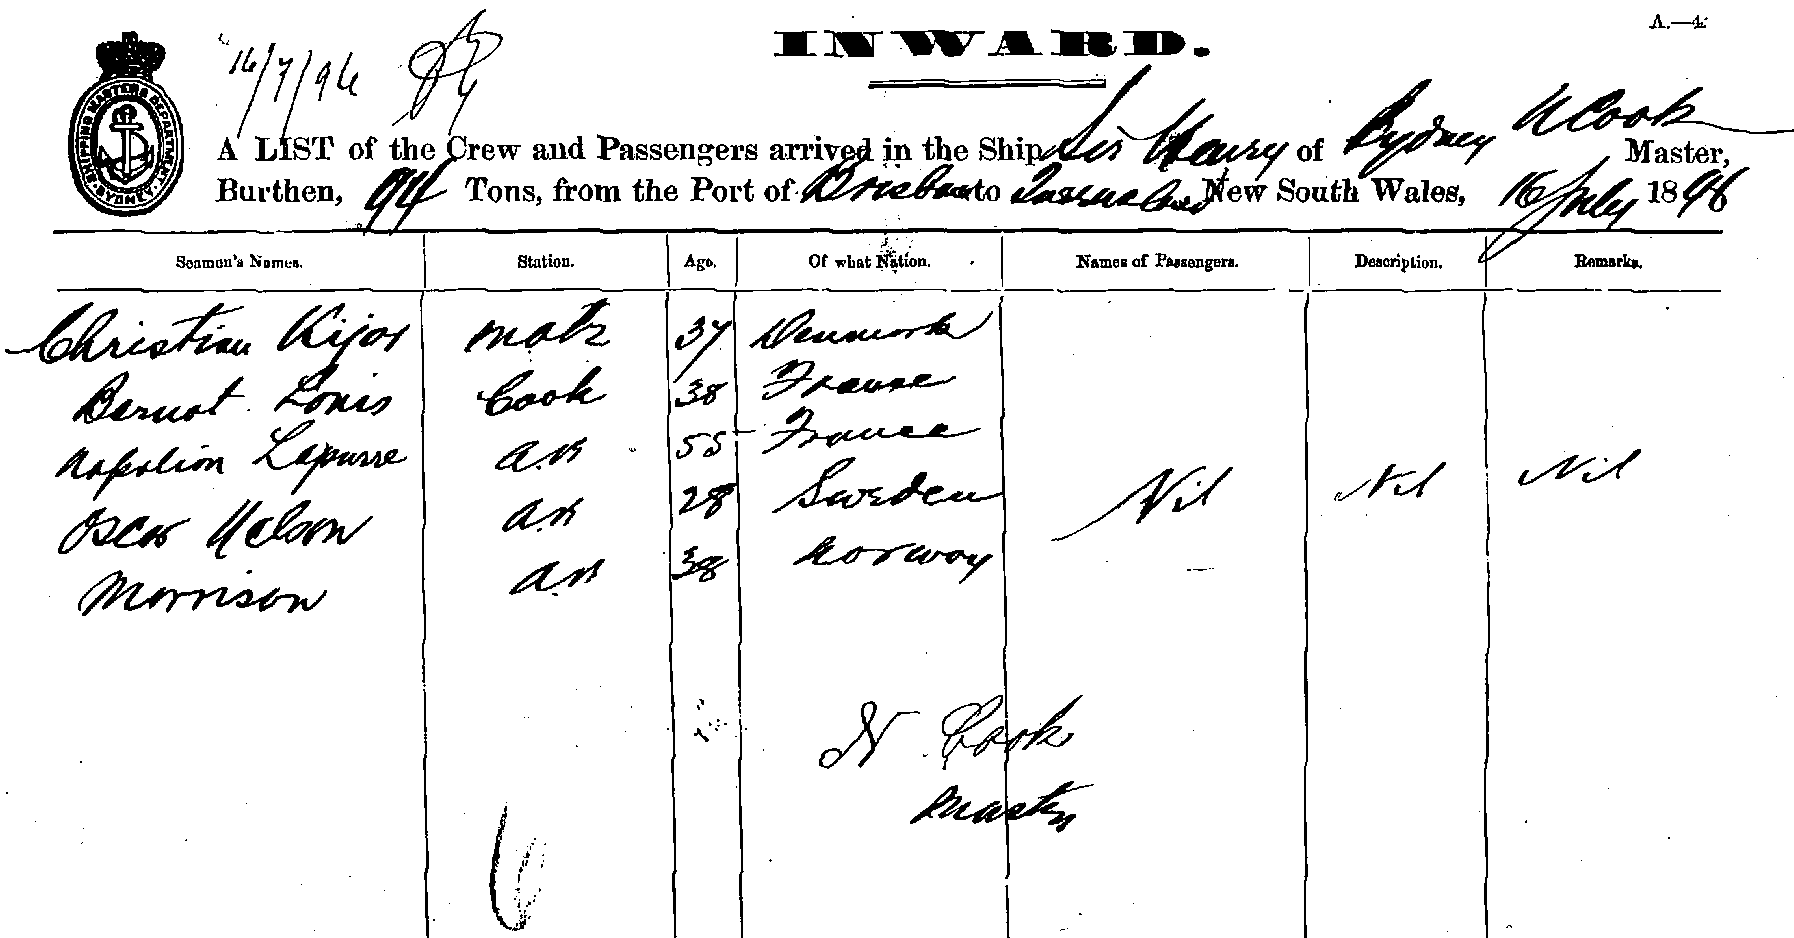 A.—4.
16/7/96
INWARD.
SHIPPING MASTERS DEPARTMENT SYDNEY
A LIST of the Crew and Passengers arrived in the Ship Sir Henry of Sydney N Cook Master,
Burthen, 94 Tons, from the Port of Brisbane to New South Wales, 16 July 1896
Seamen's Names. Station. Age. Of what Nation. Names of Passengers. Description. Remarks.
Christian mate 37 Denmark
Louis Cook 38 France
Napolion AB 55 France
Oscar Nelson AB 28 Sweden Nil Nil Nil
Morrison AB 38 Norway
N Cook
Master
6